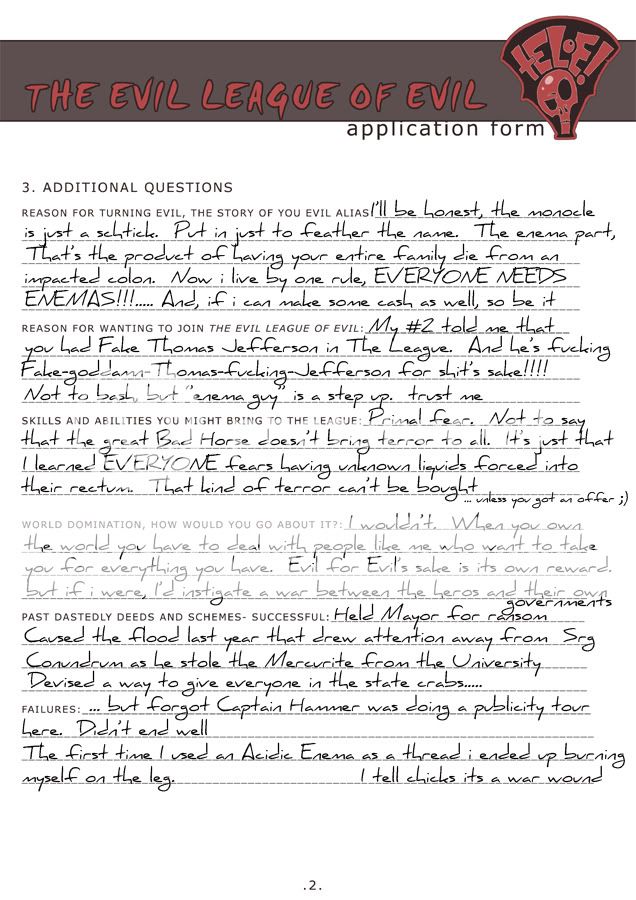 TELOE!
THE EVIL LEAGUE OF EVIL
application form
3. ADDITIONAL QUESTIONS
REASON FOR TURNING EVIL, THE STORY OF YOU EVIL ALIAS I'll be honest, the monocle
is just a schtick. Put in just to feather the name. The enema part,
That's the product of having your entire family die from an
impacted colon. Now i live by one rule, EVERYONE NEEDS
ENEMAS!!!..... And, if i can make some cash as well, so be it
REASON FOR WANTING TO JOIN THE EVIL LEAGUE OF EVIL: My #2 told me that
you had Fake Thomas Jefferson in The League. And he's fucking
Fake-goddamn-Thomas-fucking-Jefferson for shit's sake!!!!
Not to bash, but "enema guy" is a step up. trust me
SKILLS AND ABILITIES YOU MIGHT BRING TO THE LEAGUE: Primal fear. Not to say
that the great Bad Horse doesn't bring terror to all. It's just that
I learned EVERYONE fears having unknown liquids forced into
their rectum. That kind of terror can't be bought
... unless you got an offer ;)
WORLD DOMINATION, HOW WOULD YOU GO ABOUT IT?: I wouldn't. When you own
the world you have to deal with people like me who want to take
you for everything you have. Evil for Evil's sake is its own reward.
but if i were, I'd instigate a war between the heros and their own
governments
PAST DASTEDLY DEEDS AND SCHEMES- SUCCESSFUL: Held Mayor for ransom
Caused the flood last year that drew attention away from Srg
Conundrum as he stole the Mercurite from the University
Devised a way to give everyone in the state crabs.....
FAILURES: ... but forgot Captain Hammer was doing a publicity tour
here. Didn't end well
The first time I used an Acidic Enema as a thread i ended up burning
myself on the leg. I tell chicks its a war wound
.2.